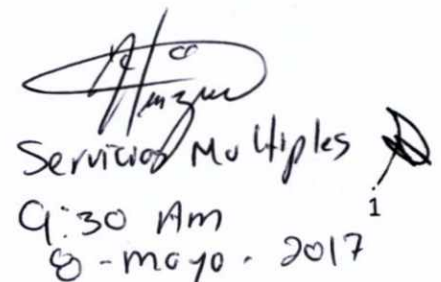 Servicios Multiples
1
9:30 Am
8 - mayo - 2017